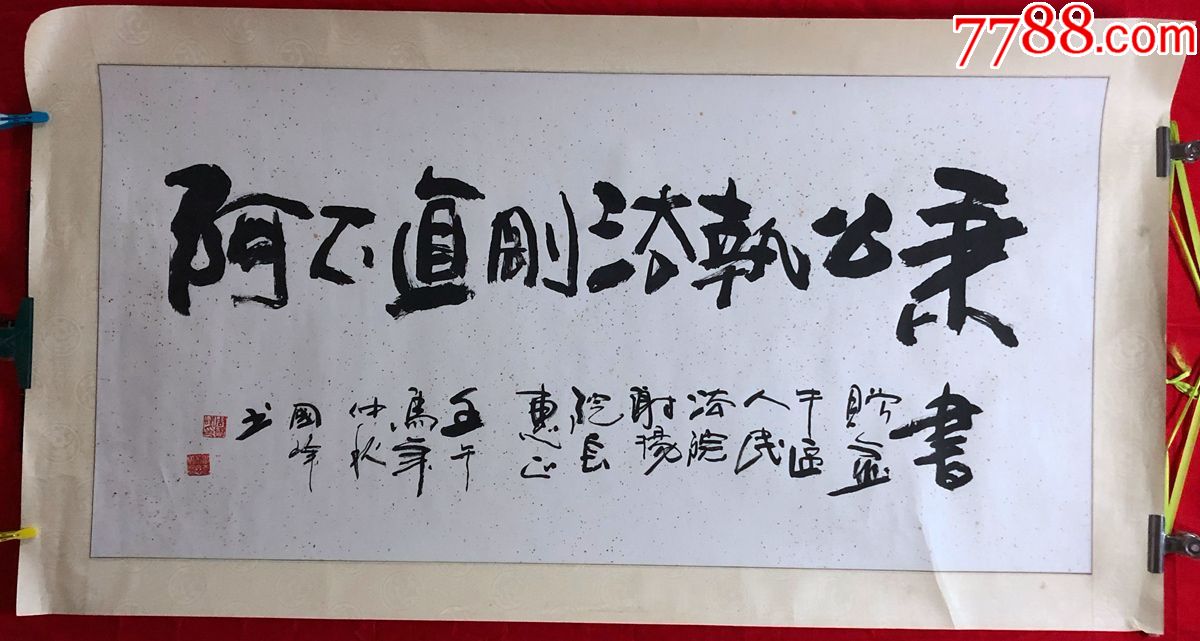 7788.com
秉公執法剛直不阿
書
贈金
牛區
人民
法院
謝
院長
惠正
壬午
馬年
仲秋
國峰
书